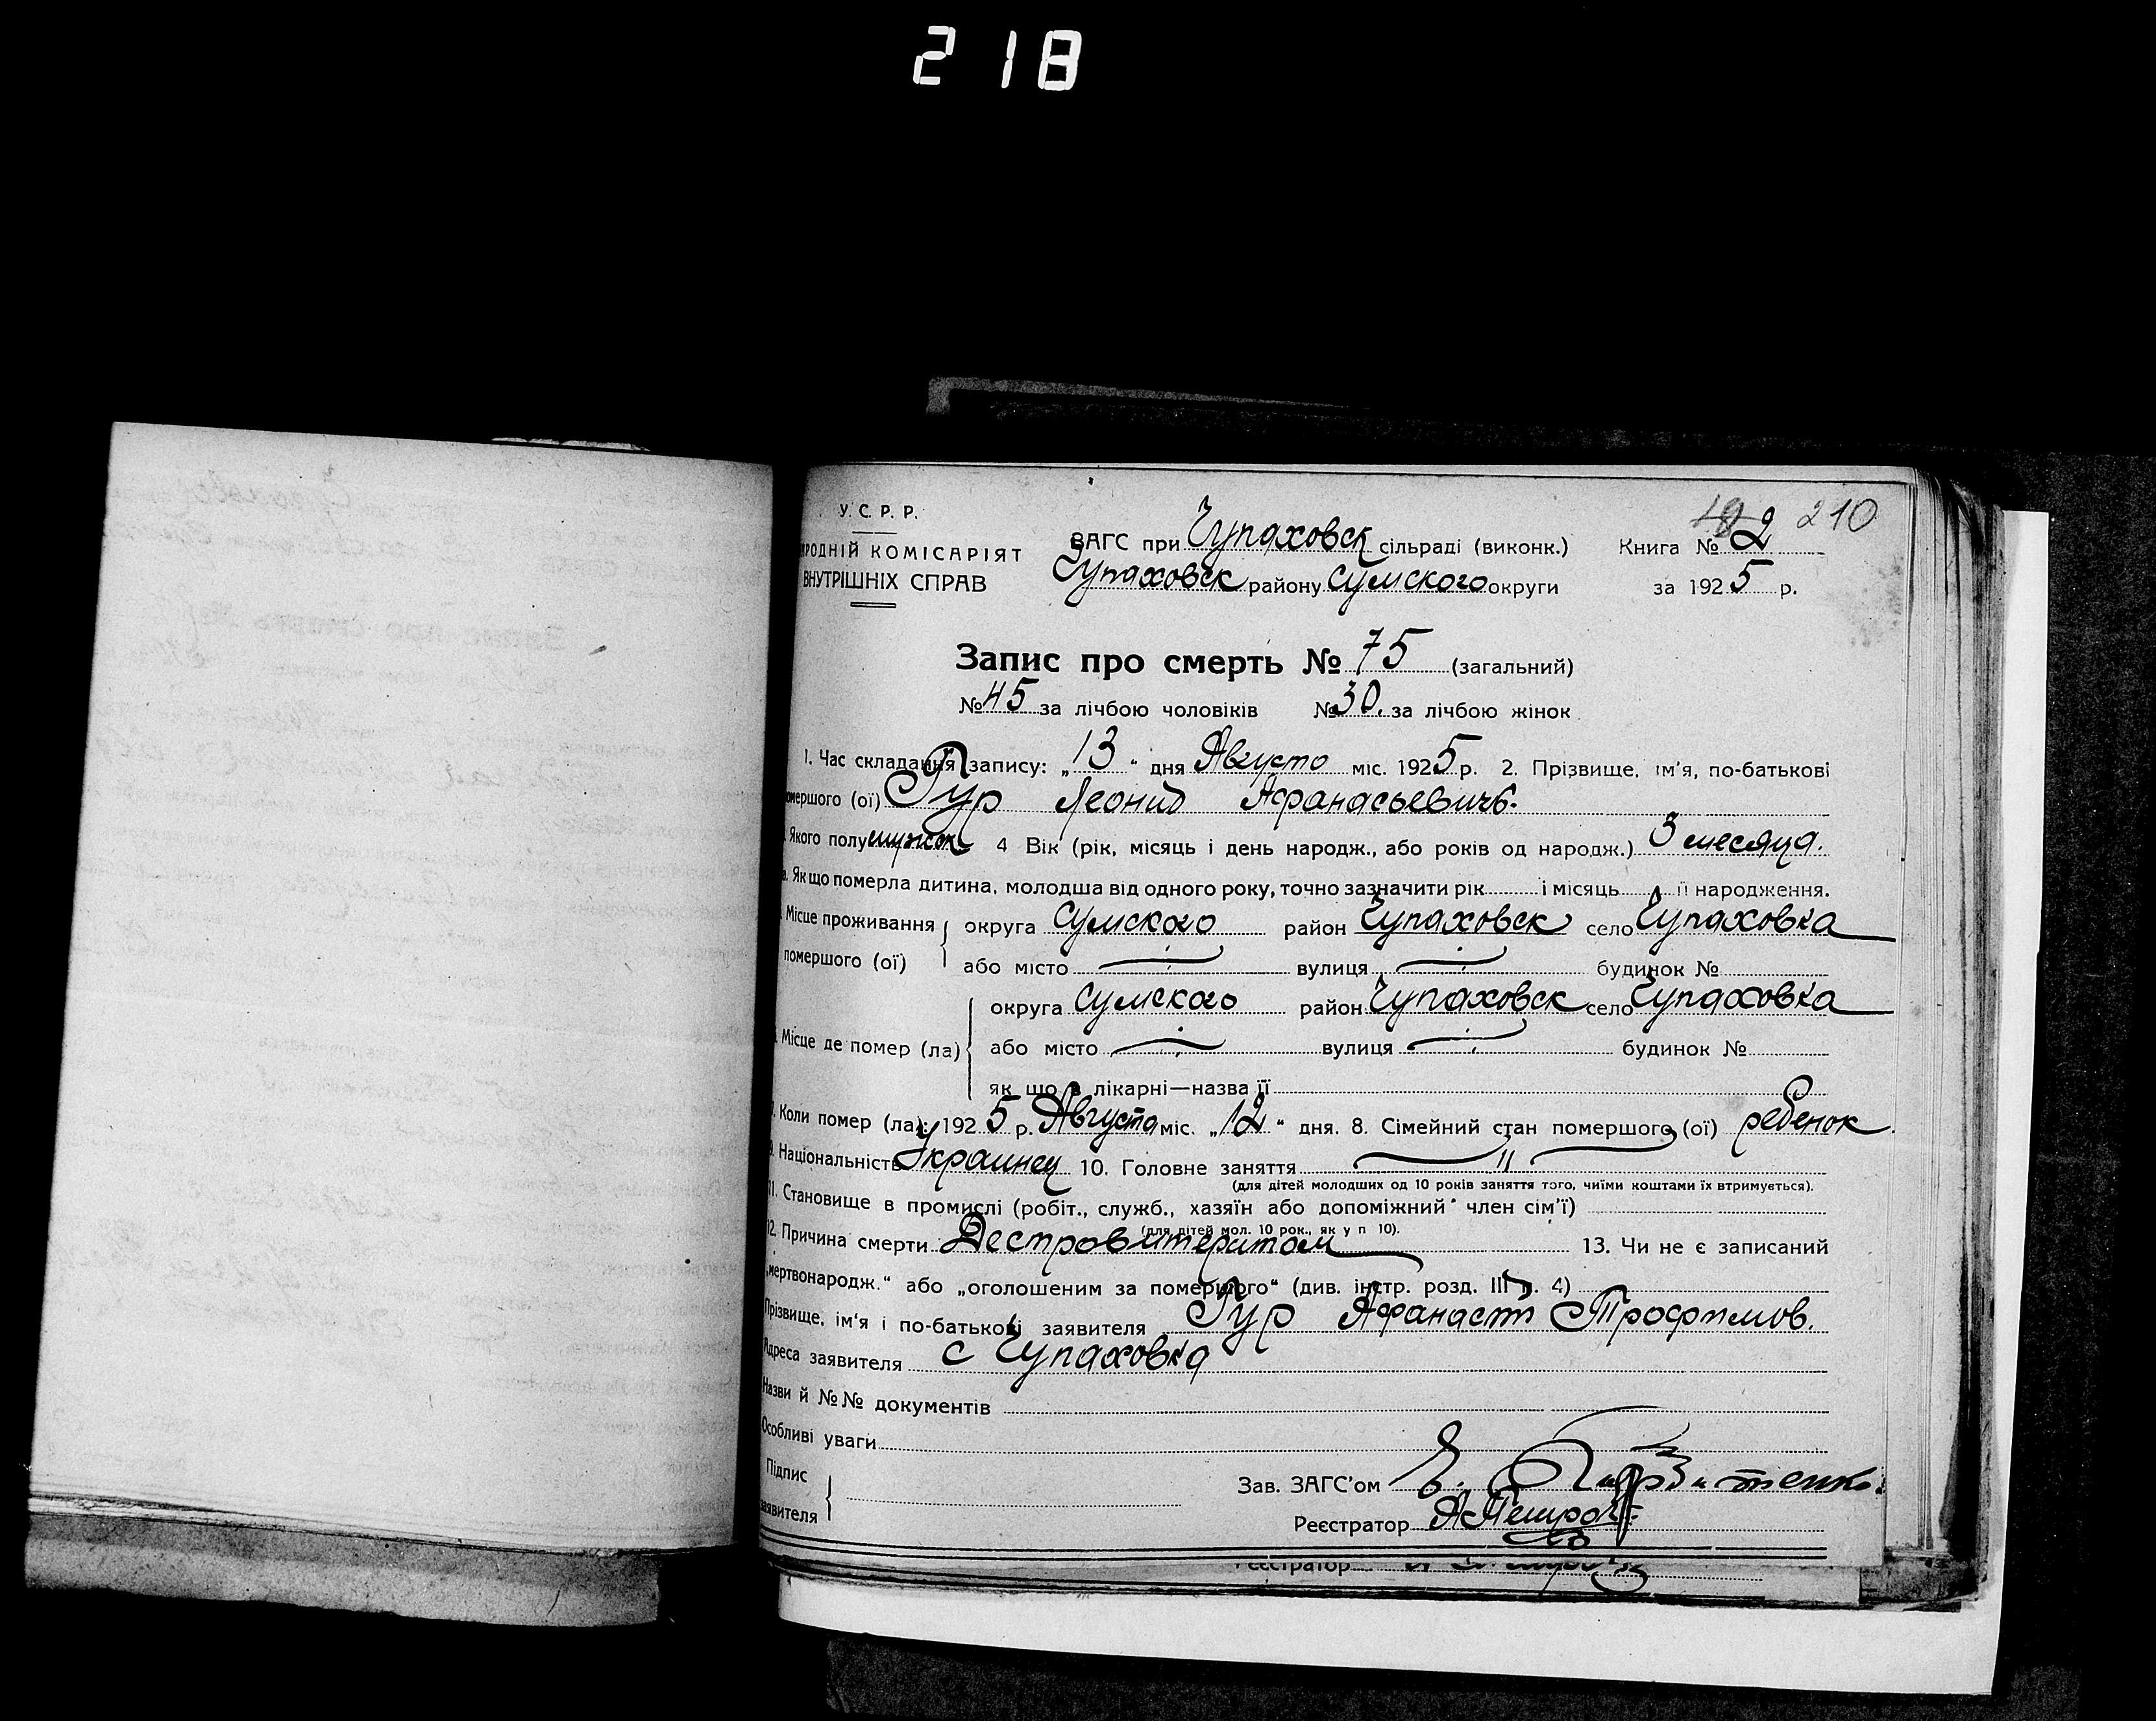 218
210
У. С. Р. Р.
РОДНІЙ КОМІСАРІЯТ
ВНУТРІШНІХ СПРАВ
ЗАГС при Чупаховск сільраді (виконк.) Книга № 2
Чупаховск району Сумского округи за 1925 р.
Запис про смерть № 75 (загальний)
№ 45 за лічбою чоловіків № 30. за лічбою жінок
1. Час складання запису: „13“ дня Августа міс. 1925 р. 2. Прізвище, ім'я, по-батькові
омершого (ої) Гур Леонид Афанасьевичъ.
Якого полу мужск 4 Вік (рік, місяць і день народж., або років од народж.) 3 месяца.
а. Якщо померла дитина, молодша від одного року, точно зазначити рік і місяць її народження.
Місце проживання округа Сумского район Чупаховск село Чупаховка
помершого (ої) або місто вулиця будинок №
округа Сумского район Чупаховск село Чупаховка
Місце де помер (ла) або місто вулиця будинок №
як що в лікарні—назва її
Коли помер (ла): 1925 р. Августа міс. „12“ дня. 8. Сімейний стан помершого (ої) ребенок.
9. Національність Украинец 10. Головне заняття "
(для дітей молодших од 10 років заняття того, чиїми коштами їх втримується).
11. Становище в промислі (робіт., служб., хазяїн або допоміжний член сім'ї)
(для дітей мол. 10 рок., як у п 10).
12. Причина смерти 13. Чи не є записаний
„мертвонародж.“ або „оголошеним за помершого“ (див. інстр. розд. III п. 4)
Прізвище, ім'я і по-батькові заявителя Гур Афанасій Трофимов.
Адреса заявителя с Чупаховка
Назви й №№ документів
Особливі уваги
Підпис
заявителя
Зав. ЗАГС'ом
Реєстратор А Петров
Реєстратор